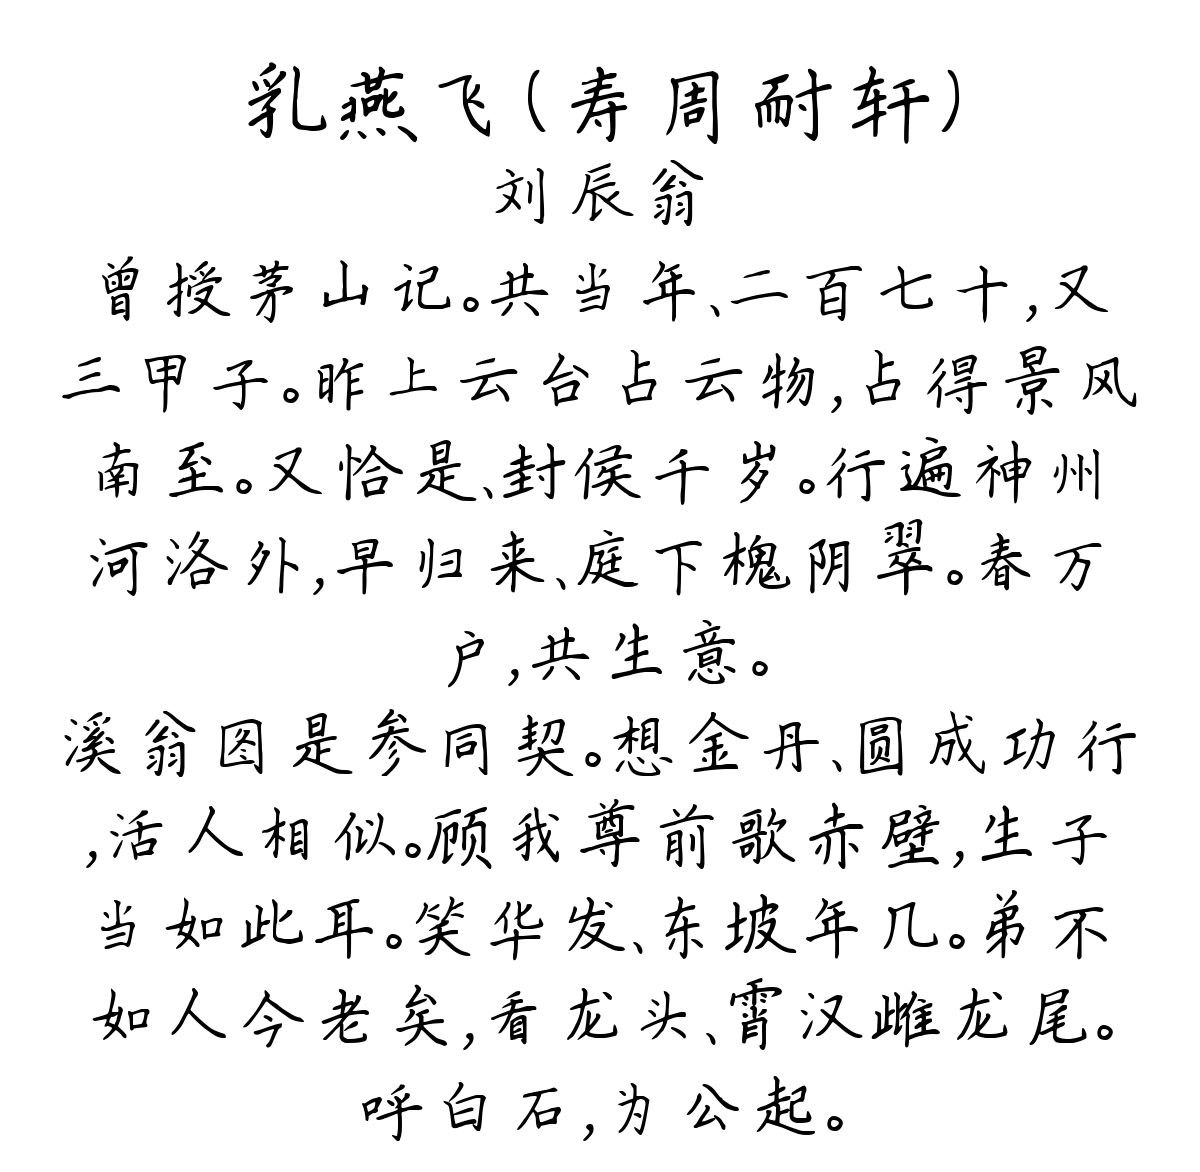 乳燕飞(寿周耐轩)
刘辰翁
曾授茅山记。共当年、二百七十,又
三甲子。昨上云台占云物,占得景风
南至。又恰是、封侯千岁。行遍神州
河洛外,早归来、庭下槐阴翠。春万
户,共生意。
溪翁图是参同契。想金丹、圆成功行
,活人相似。顾我尊前歌赤壁,生子
当如此耳。笑华发、东坡年几。弟不
如人今老矣,看龙头、霄汉雌龙尾。
呼白石,为公起。